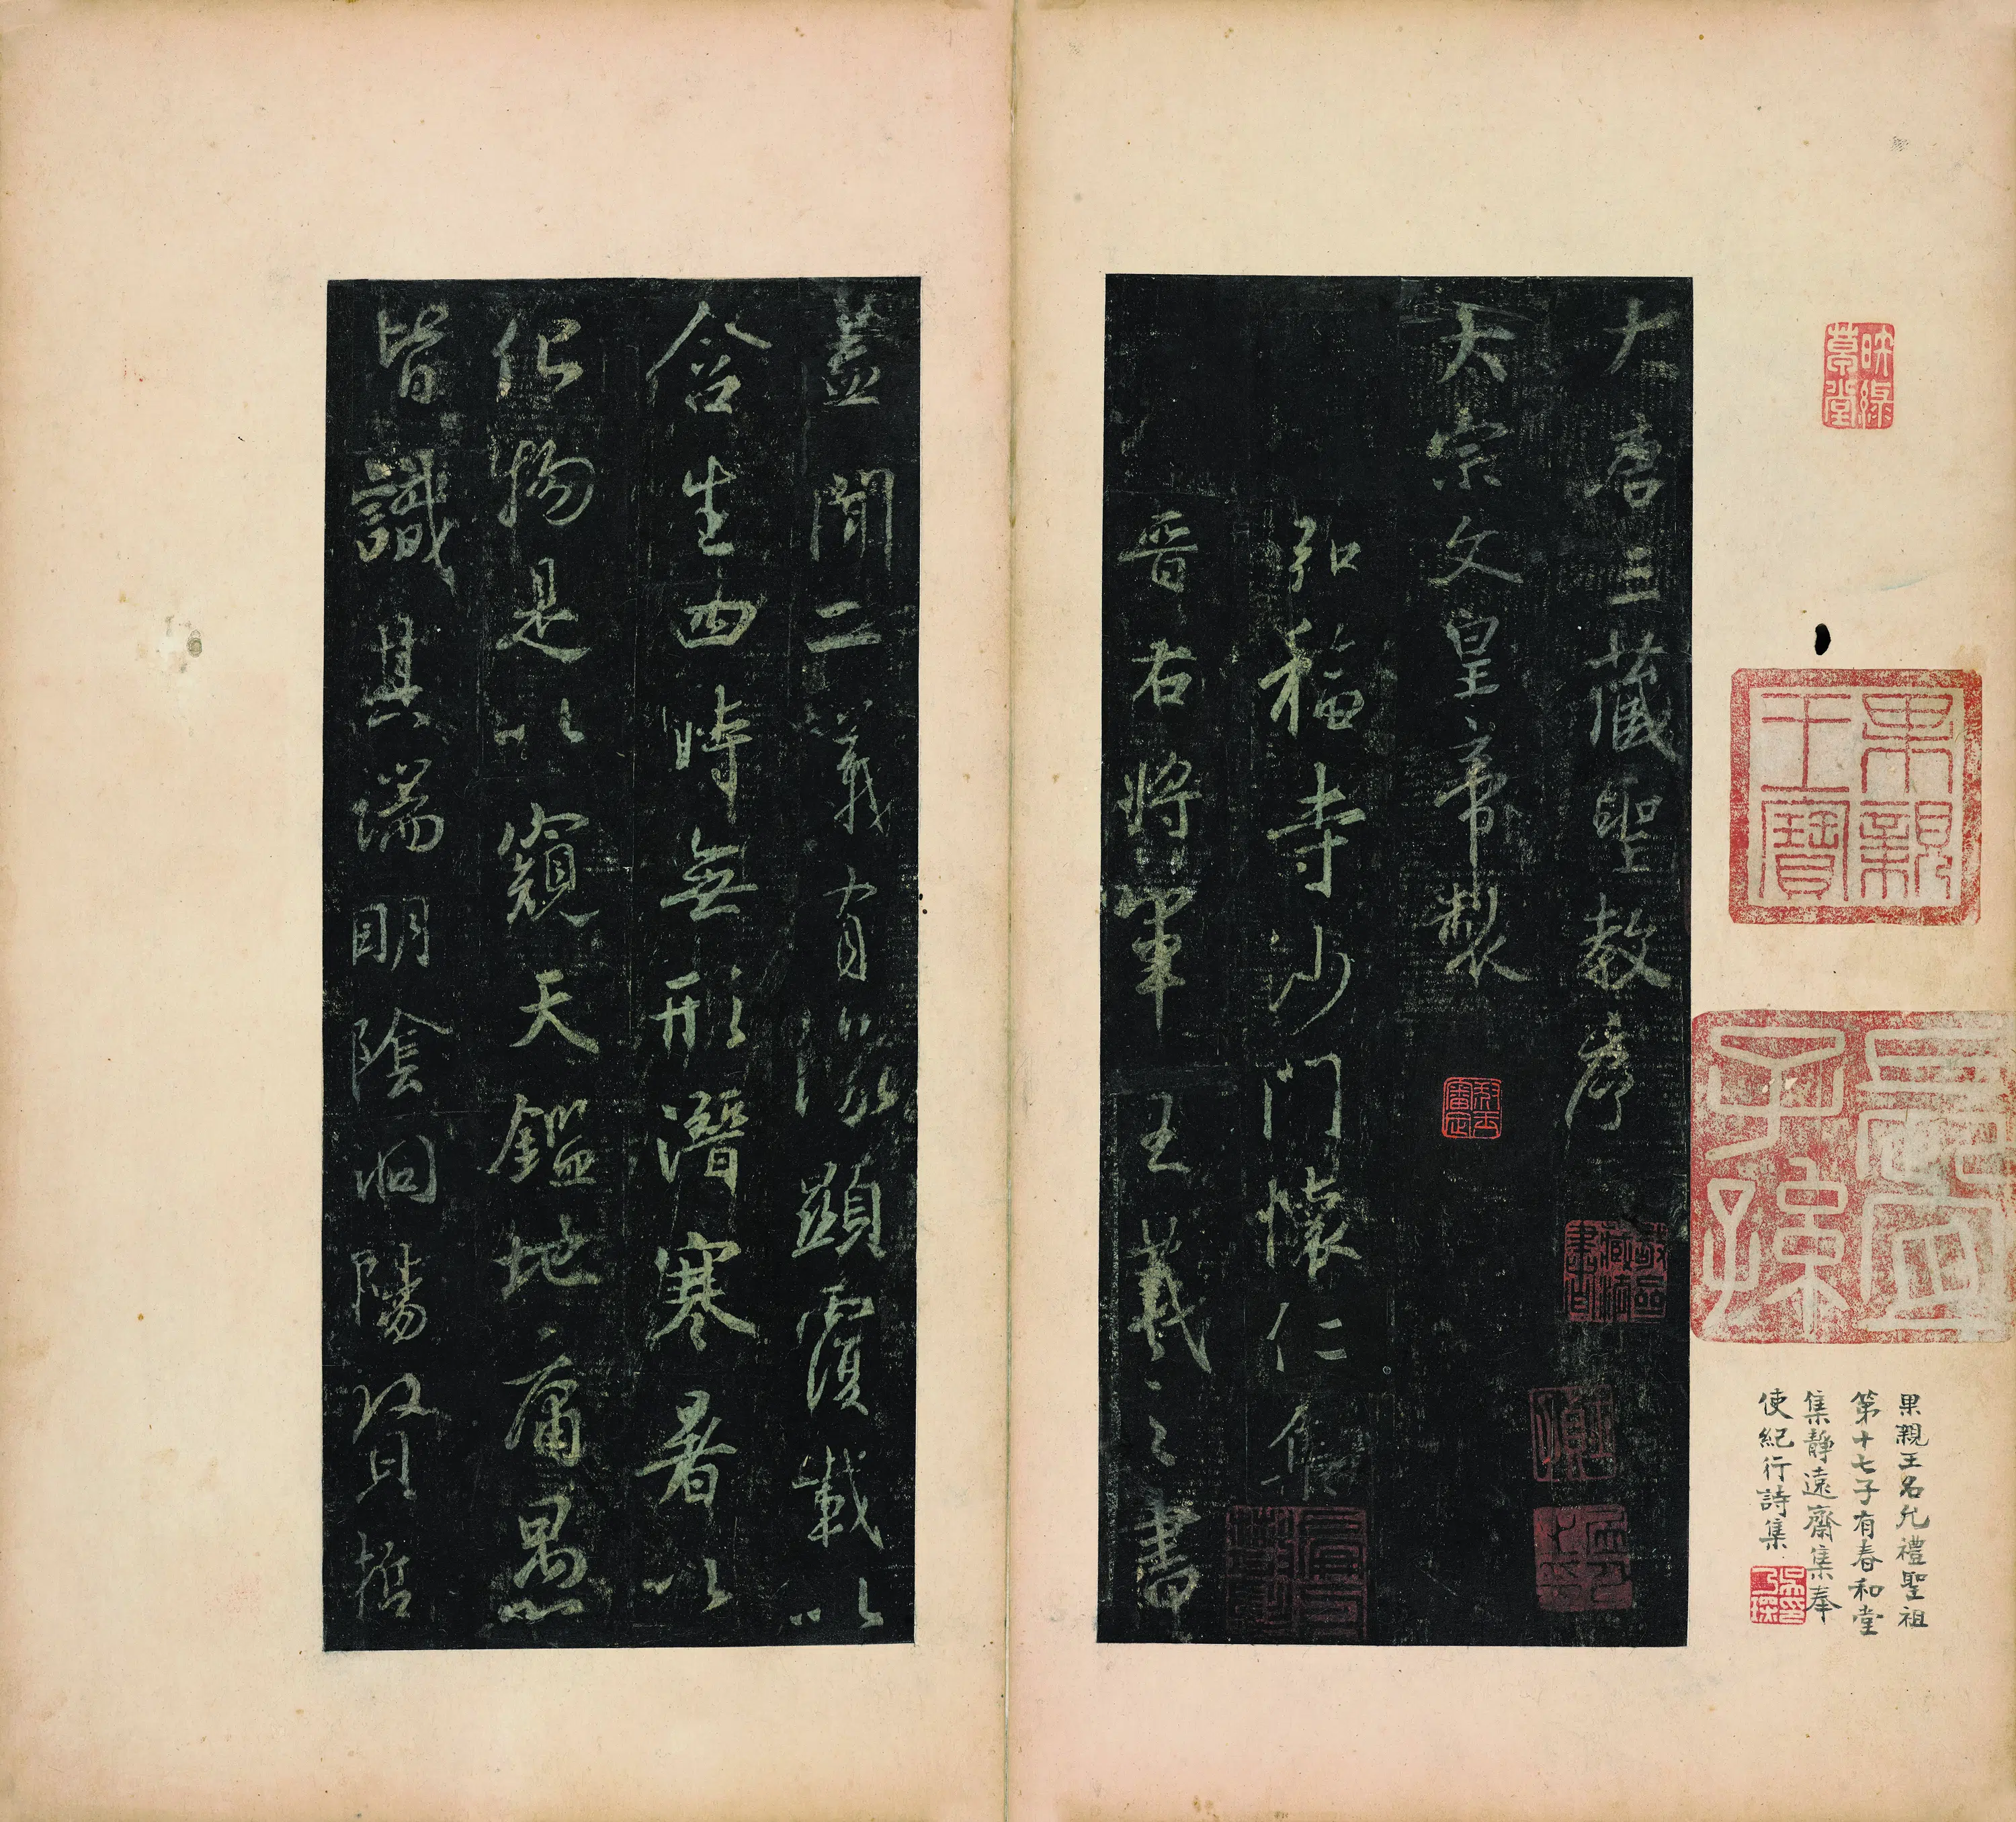 大唐三藏聖教序
太宗文皇帝製
弘福寺沙門懷仁集
晉右將軍王羲之書
蓋聞二儀有像顯覆載以
含生四時無形潛寒暑以
化物是以窺天鑑地庸愚
皆識其端明陰洞陽賢哲
映綠草堂
果親王寶
長宜子孫
果親王名允禮聖祖
第十七子有春和堂
集靜遠齋集奉
使紀行詩集
吳乃琛印